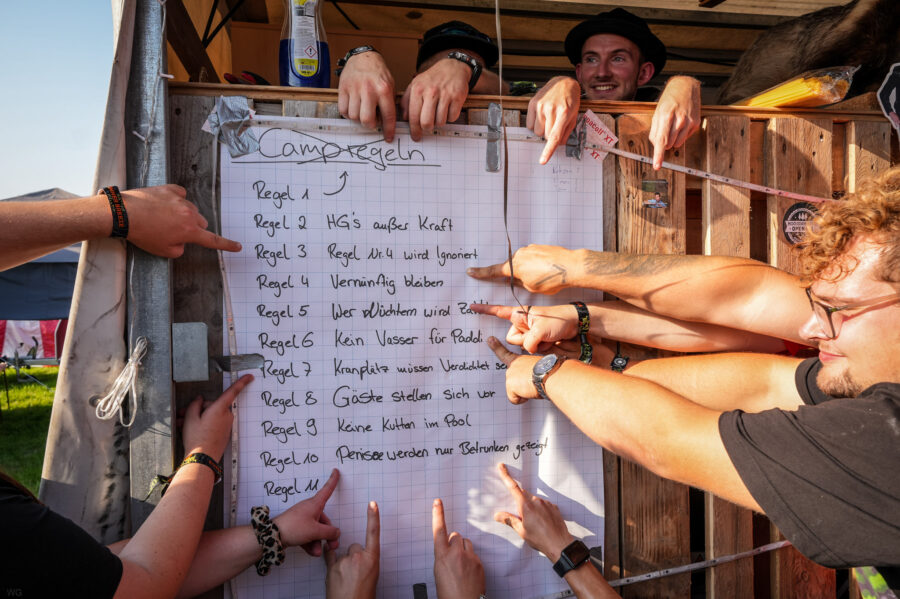 Campregeln
Regel 1
Regel 2 HG's außer Kraft
Regel 3 Regel Nr.4 wird Ignoriert
Regel 4 Vernünftig bleiben
Regel 5 Wer nüchtern wird
Regel 6 Kein Wasser für Paddi
Regel 7 Kranplätz müssen Verdichtet
Regel 8 Gäste stellen sich vor
Regel 9 Keine Kutten im Pool
Regel 10 Penisee werden nur Betrunken gezeigt
Regel 11
WG